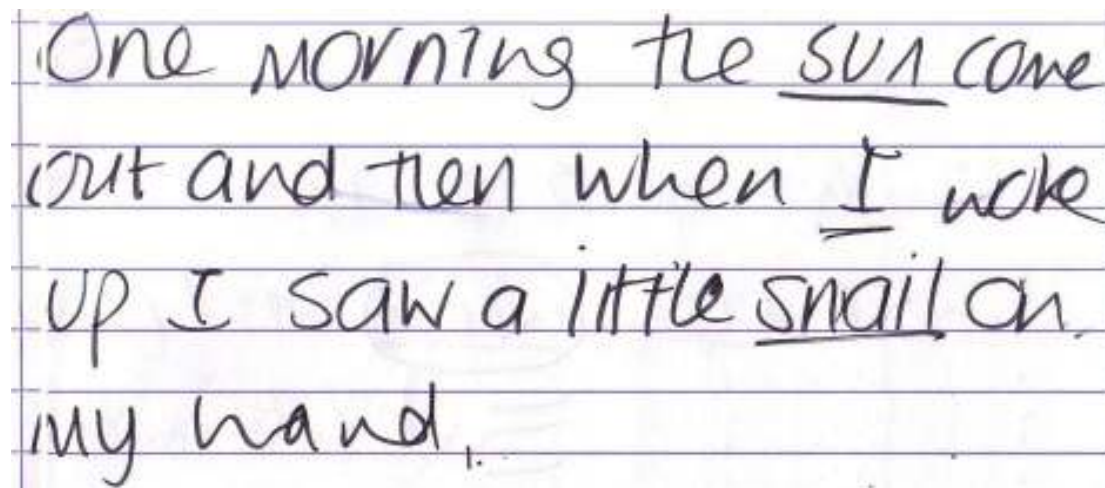 One morning the sun come
out and then when I woke
up I saw a little snail on
my hand.